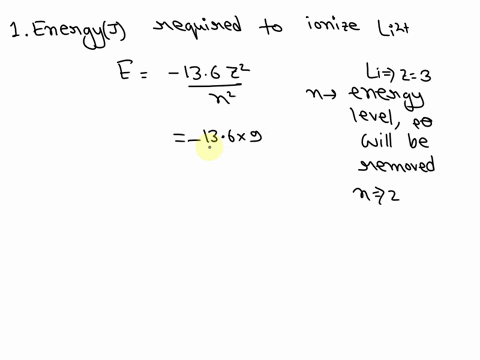 1. Energy(J) required to ionize Li2+
E = -13.6 Z²/n²
= -13.6 x 9
Li => Z = 3
n → energy
level, e⊖
will be
removed
n => 2